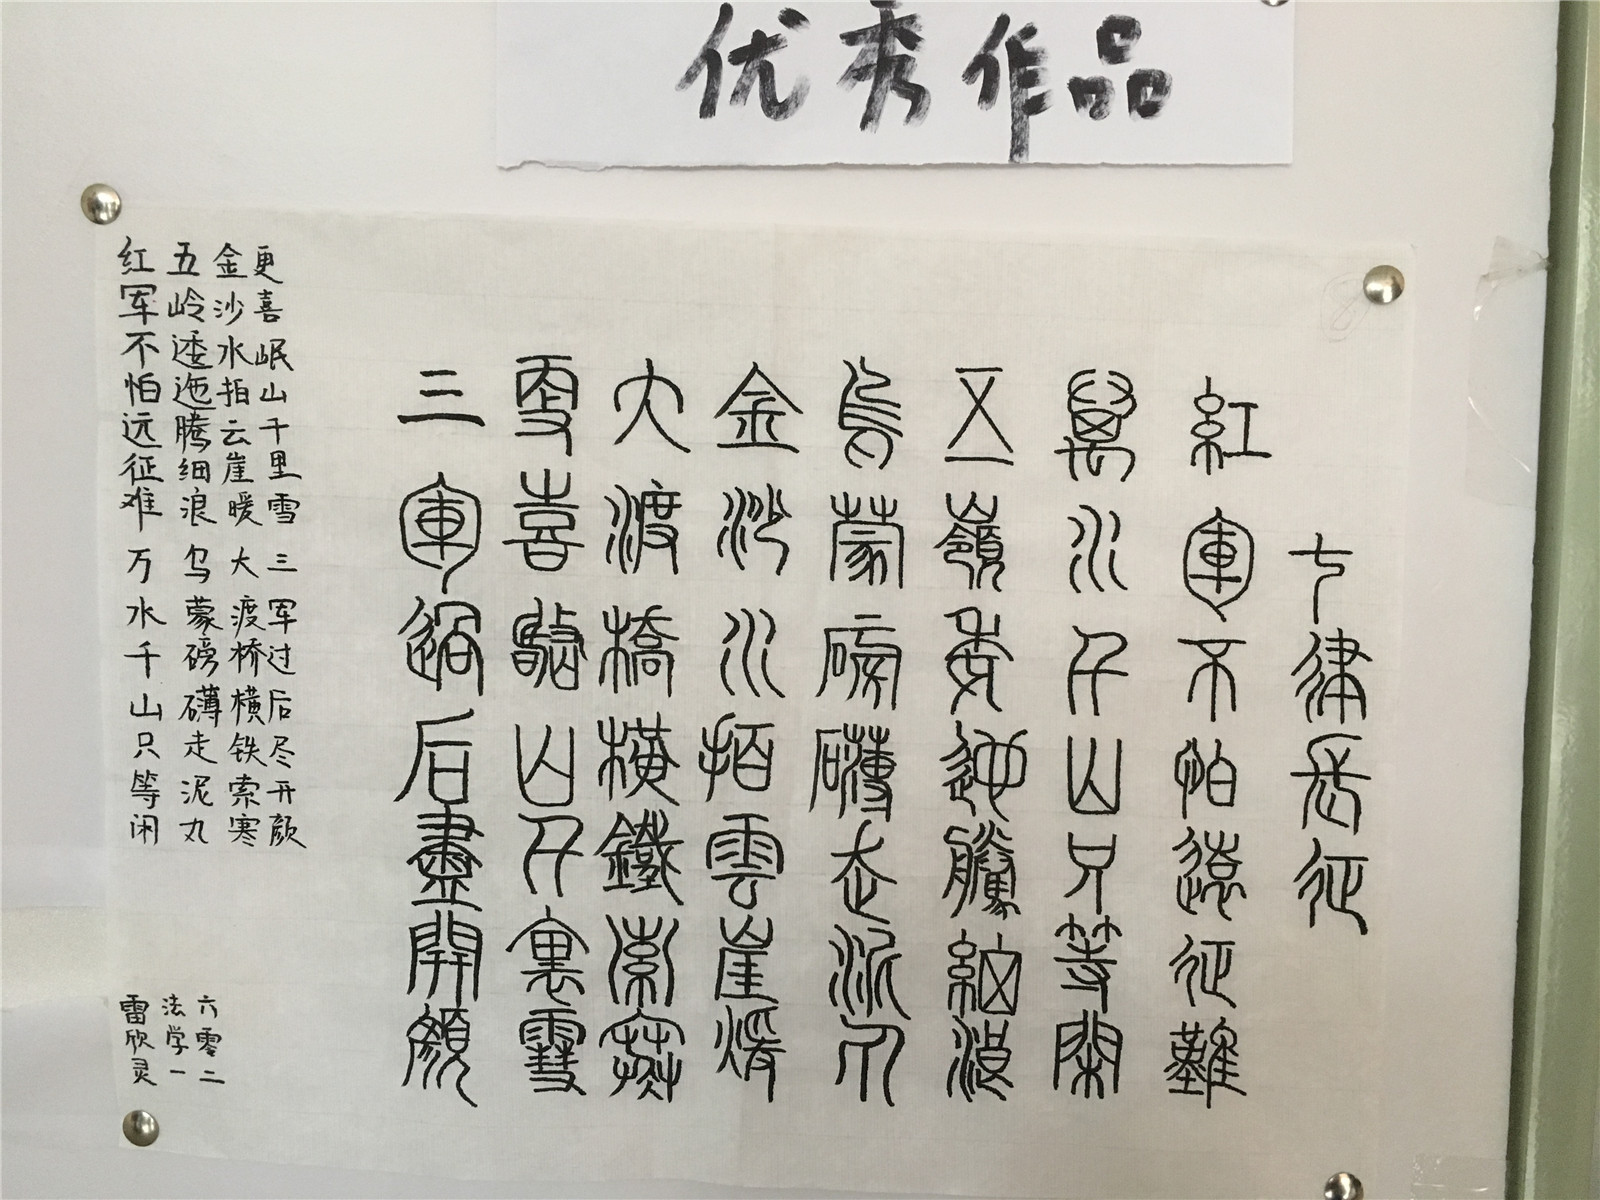 优秀作品
七律長征
紅軍不怕遠征難
萬水千山只等閑
五嶺委迤騰細浪
烏蒙磅礴走泥丸
金沙水拍雲崖煖
大渡橋橫鐵索寒
更喜岷山千裏雪
三軍過后盡開顏
红军不怕远征难 万水千山只等闲
五岭逶迤腾细浪 乌蒙磅礴走泥丸
金沙水拍云崖暖 大渡桥横铁索寒
更喜岷山千里雪 三军过后尽开颜
雷欣灵
法学一
六零二
8